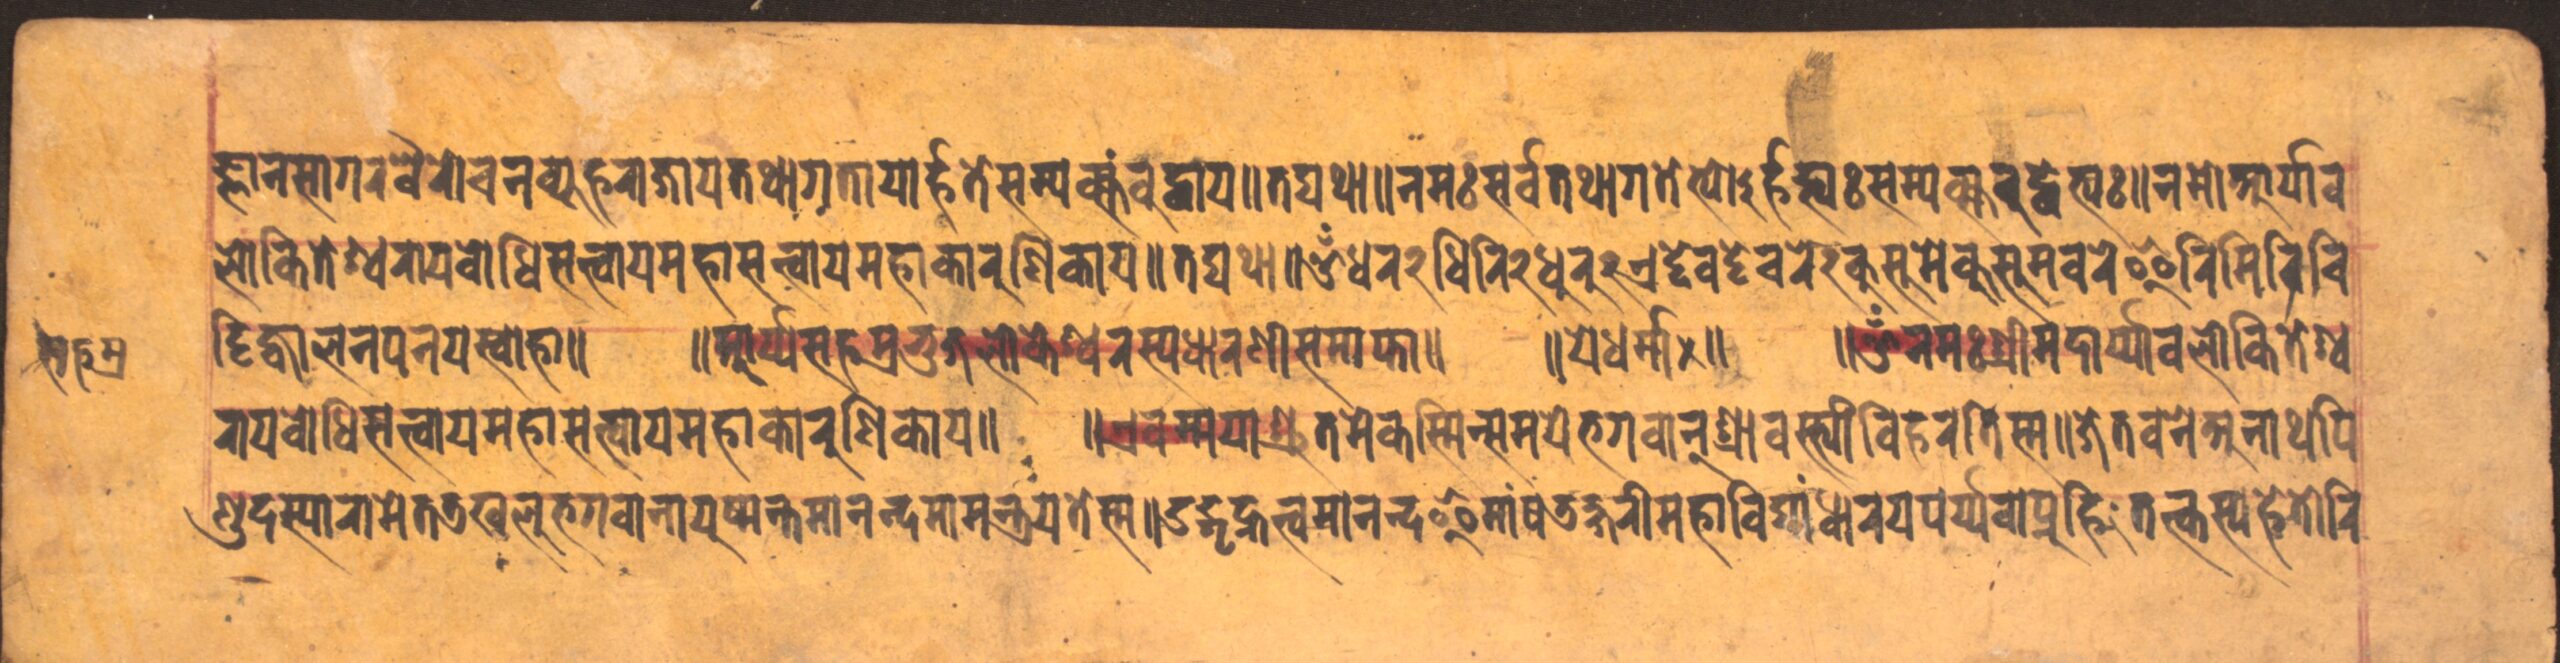 ज्ञानसागरवैरोचनव्यूहराजायतथागतायार्हतेसम्यक्संवुद्धाय॥तद्यथा॥नमःसर्वतथागतेभ्योऽर्हद्भ्यःसम्यक्संवुद्धेभ्यः॥नमोआर्याव
लोकितेश्वरायवोधिसत्त्वायमहासत्त्वायमहाकारुणिकाय॥तद्यथा॥ॐधर२धिरि२धुरु२इट्टेवट्टेचरे२कुसुमेकुसुमवरेइरिमिरिचि
ट्टिज्वालनपनयस्वाहा॥ ॥आर्य्यसहस्रभुजलोकेश्वरस्यधारणीसमाप्ता॥ ॥येधर्मा×॥ ॥ॐनमःश्रीमदार्य्यावलोकितेश्व
रायवोधिसत्त्वायमहासत्त्वायमहाकारुणिकाय॥ ॥एवम्मयाश्रुतमेकस्मिन्समयेभगवान्श्रावस्त्यांविहरतिस्म॥जेतवनेअनाथपि
ण्डदस्यारामेतत्रखलुभगवानायुष्मन्तमानन्दमामन्त्रयतेस्म॥उद्गृह्नत्वमानन्दइमांषडक्षरीमहाविद्यांधारयपर्य्यवाप्नुहितत्कस्यहेतोरि